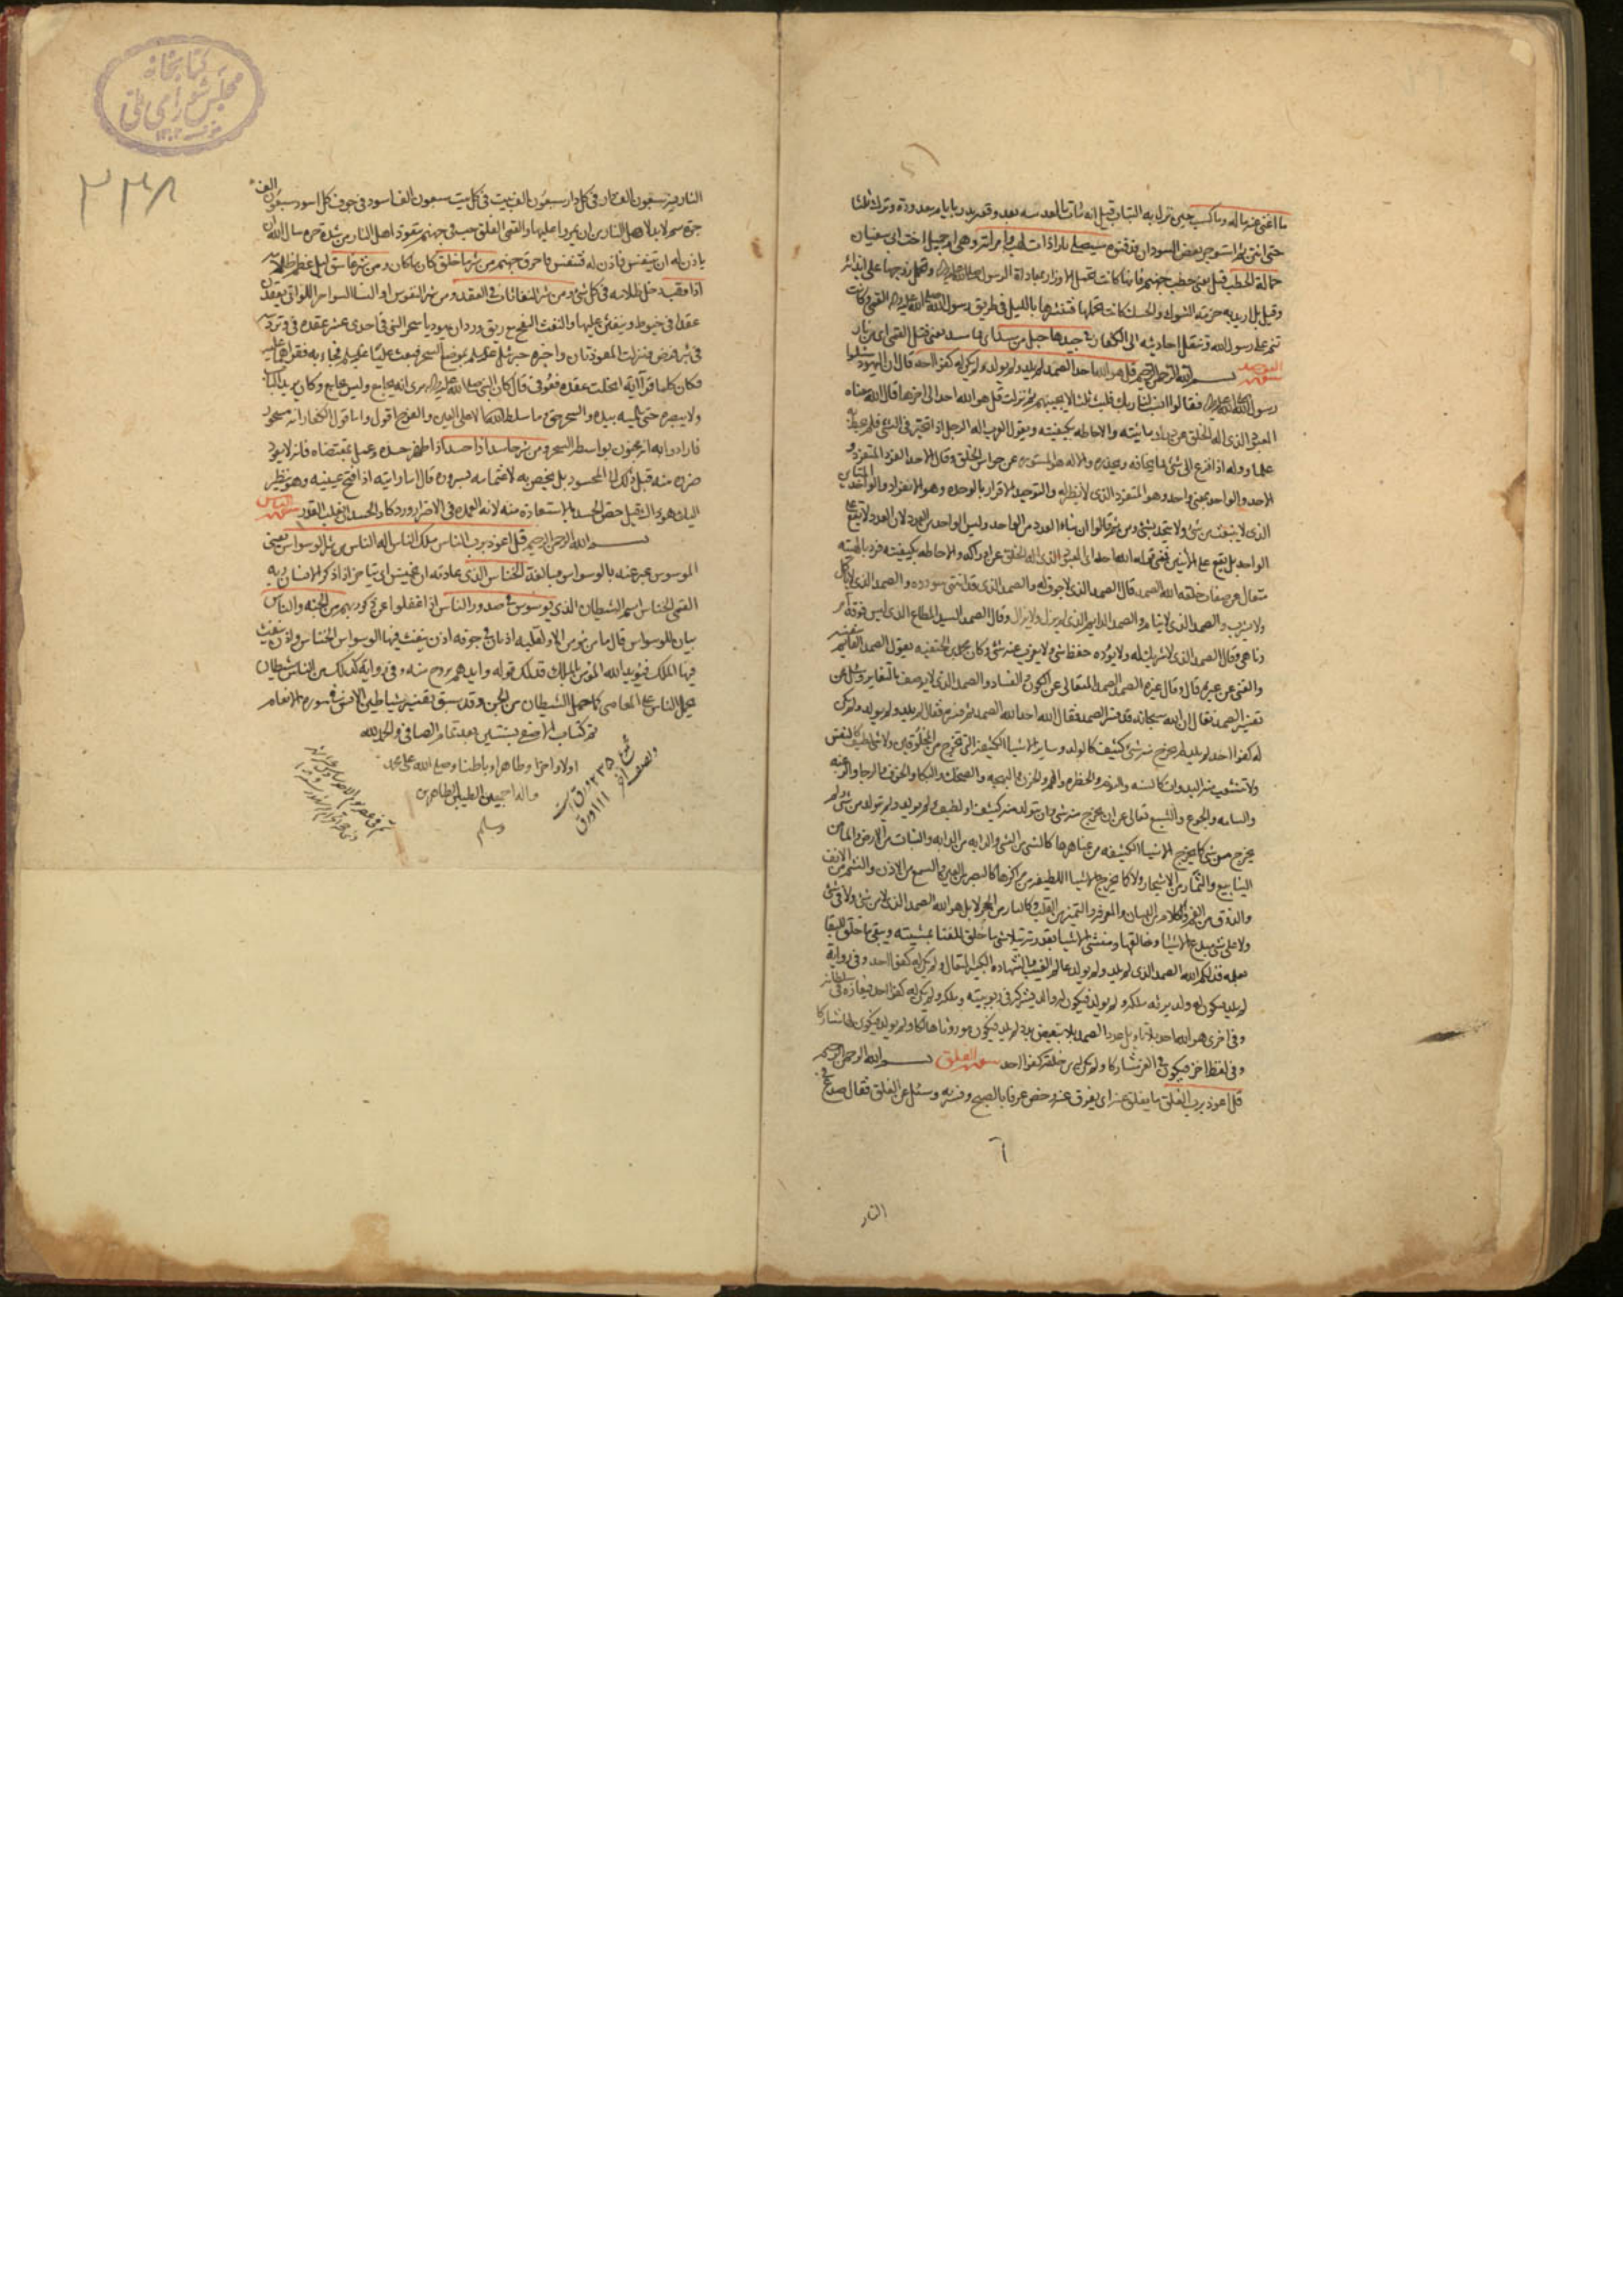 ما اغنى عنه ماله وما كسب حين نزل به التباب قيل انه مات بالعدسه بعد وقعه بدر بايام معدودة وترك ثلثا
حتى انتن ثم استوجر بعض السودان فدفنوه سيصلى نارا ذات لهب وامراته وهى ام جميل اخت ابى سفيان
حمالة الحطب قيل يعنى حطب جهنم فانها كانت تحمل الاوزار بمعاداة الرسول وتحمل زوجها على ايذائه
وقيل بل اريد به حزمة الشوك والحسك كانت تحملها فتنثرها بالليل فى طريق رسول الله القمى وكانت
تنم على رسول الله وتنقل احاديثه الى الكفار فى جيدها حبل من مسد اى مما مسد يعنى فتل القمى اى من نار
بسم الله الرحمن الرحيم قل هو الله احد الله الصمد لم يلد ولم يولد ولم يكن له كفوا احد قال ان اليهود سئلوا
رسول الله فقالوا انسب لنا ربك فلبث ثلثا لا يجيبهم ثم نزلت قل هو الله احد الى اخرها قال الله معناه
المعبود الذى اله الخلق عن درك مائيته والاحاطه بكيفيته ويقول العرب اله الرجل اذا تحير فى الشئ فلم يحط به
علما ووله اذا فزع الى شئ مما يحذره ويخافه والاله هو المستور عن حواس الخلق وقال الاحد الفرد المتفرد و
الاحد والواحد بمعنى واحد وهو المتفرد الذى لا نظير له والتوحيد الاقرار بالوحده وهو الانفراد والواحد المتباين
الذى لا ينبعث من شئ ولا يتحد بشئ ومن ثم قالوا ان بناء العدد من الواحد وليس الواحد من العدد لان العدد لا يقع على
الواحد بل يقع على الاثنين فمعنى قوله الله احد اى المعبود الذى اله الخلق عن ادراكه والاحاطه بكيفيته فرد بالهيته
متعال عن صفات خلقه الله الصمد قال الصمد الذى لا جوف له والصمد الذى قد انتهى سودده والصمد الذى لا ياكل
ولا يشرب والصمد الذى لا ينام والصمد الدايم الذى لم يزل ولا يزال وقال الصمد السيد المطاع الذى ليس فوقه آمر
وناهى وقال الصمد الذى لا شريك له ولا يؤده حفظ شئ ولا يعزب عنه شئ وكان محمد بن الحنفيه يقول الصمد القايم بنفسه
والغنى عن غيره قال وقال غيره الصمد المتعالى عن الكون والفساد والصمد الذى لا يوصف بالتغاير وسئل عن
تفسير الصمد فقال ان الله سبحانه قد فسر الصمد فقال الله احد الله الصمد ثم فسره فقال لم يلد ولم يولد ولم يكن
له كفوا احد لم يلد لم يخرج منه شئ كثيف كالولد وساير الاشيا الكثيفه التى تخرج من المخلوقين ولا شئ لطيف كالنفس
ولا تتشعب منه البدوات كالسنه والنوم والخطره والهم والحزن والبهجه والضحك والبكا والخوف والرجا والرغبه
والسامه والجوع والشبع تعالى عن ان يخرج منه شئ وان يتولد منه شئ كثيف او لطيف ولم يولد ولم يتولد من شئ ولم
يخرج من شئ كما يخرج الاشيا الكثيفه من عناصرها كالشئ من الشئ والدابه من الدابه والنبات من الارض والما من
الينابيع والثمار من الاشجار ولا كما يخرج الاشيا اللطيفه من مراكزها كالبصر من العين والسمع من الاذن والشم من الانف
والذوق من الفم والكلام من اللسان والمعرفه والتميز من القلب وكالنار من الحجر لا بل هو الله الصمد الذى لا من شئ ولا فى شئ
ولا على شئ مبدع الاشيا وخالقها ومنشئ الاشيا بقدرته يتلاشى ما خلق للفنا بمشيته ويبقى ما خلق للبقا
بعلمه فذلكم الله الصمد الذى لم يلد ولم يولد عالم الغيب والشهاده الكبير المتعال ولم يكن له كفوا احد وفى رواية
لم يلد فيكون له ولد يرثه ملكه ولم يولد فيكون له والد يشركه فى ربوبيته وملكه ولم يكن له كفوا احد فيعازه فى سلطانه
وفى اخرى هو الله احد بلا تاويل عدد الصمد بلا تبعيض بدد لم يلد فيكون موروثا هالكا ولم يولد فيكون الها مشاركا
وفى لفظ اخر فيكون فى العز مشاركا ولم يكن له من خلقه كفوا احد سورة الفلق بسم الله الرحمن الرحيم
قل اعوذ برب الفلق ما يفلق عنه اى يفرق عنه وخص عرفا بالصبح وفسر به وسئل عن الفلق فقال صدع فى
النار
النار فيه سبعون الف دار فى كل دار سبعون الف بيت فى كل بيت سبعون الف اسود فى جوف كل اسود سبعون الف
جرة سم لا بد لاهل النار من ان يمروا عليها والقمى الفلق جب فى جهنم يتعوذ اهل النار من شدة حره سال الله ان
ياذن له ان يتنفس فاذن له فتنفس فاحرق جهنم من شر ما خلق كان ما كان ومن شر غاسق ليل عظم ظلامه
اذا وقب دخل ظلامه فى كل شئ ومن شر النفاثات فى العقد ومن شر النفوس او النسا السواحر اللواتى يعقدن
عقدا فى خيوط وينفثن عليها والنفث النفخ مع ريق ورد ان يهوديا سحر النبى فى احدى عشر عقده فى وتر دسه
فى بئر فمرض فنزلت المعوذتان واخبره جبرئيل بموضع السحر فبعث عليا فجاء به فقراهما عليه
فكان كلما قرا آية انحلت عقده فعوفى قال كان النبى يرى انه يجامع وليس يجامع وكان يريد الباب
ولا يبصره حتى يلمسه بيده والسحر حق وما سلط الله الا على العين والفرج اقول واما قول الكفار انه مسحور
فارادوا به انه مجنون بواسطه السحر ومن شر حاسد اذا حسد اذا اظهر حسده وعمل بمقتضاه فانه لا يعود
ضرره منه قبل ذلك الى المحسود بل يخص به لاغتمامه بسروره قال اما رايته اذا فتح عينيه وهو ينظر
اليك هو ذاك قيل خص الحسد بالاستعاذة منه لانه العمده فى الاضرار ورد كاد الحسد ان يغلب القدر سورة الناس
بسم الله الرحمن الرحيم قل اعوذ برب الناس ملك الناس اله الناس من شر الوسواس يعنى
الموسوس عبر عنه بالوسواس مبالغة الخناس الذى عادته ان يخنس اى يتاخر اذا ذكر الانسان ربه
القمى الخناس اسم الشيطان الذى يوسوس فى صدور الناس اذا غفلوا عن ذكر ربهم من الجنه والناس
بيان للوسواس قال ما من مومن الا ولقلبه اذنان فى جوفه اذن ينفث فيها الوسواس الخناس واذن ينفث
فيها الملك فيؤيد الله المؤمن بالملك فذلك قوله وايدهم بروح منه وفى رواية كذلك من الناس شيطان
يحمل الناس على المعاصى كما حمل الشيطان من الجن وقد سبق تفسير شياطين الانس فى سورة الانعام
تم كتاب الاصفى بسنتين بعد تمام الصافى والحمد لله
اولا واخرا وظاهرا وباطنا وصلى الله على محمد
واله اجمعين الطيبين الطاهرين
وسلم
كتابخانه
مجلس شوراى ملى